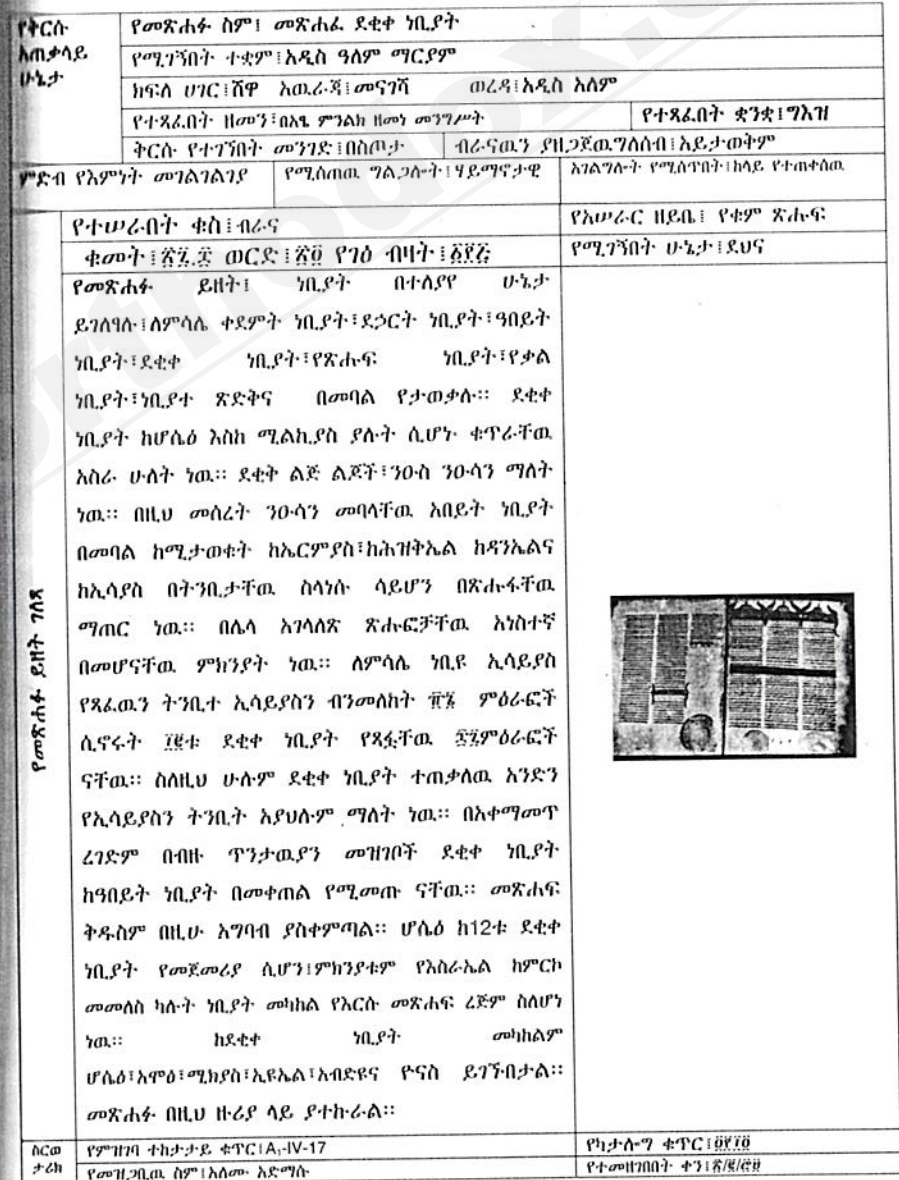 የቅርሱ አጠቃላይ ሁኔታ
የመጽሐፉ ስም፤ መጽሐፈ ደቂቀ ነቢያት
የሚገኝበት ተቋም፤አዲስ ዓለም ማርያም
ክፍለ ሀገር፤ሸዋ አዉራጃ፤መናገሻ ወረዳ፤አዲስ አለም
የተጻፈበት ዘመን፤በአፄ ምንልክ ዘመነ መንግሥት የተጻፈበት ቋንቋ፤ግእዝ
ቅርሱ የተገኘበት መንገድ፤በስጦታ ብራናዉን ያዘጋጀዉግለሰብ፤አይታወቅም
ምድብ የእምነት መገልገልገያ የሚሰጠዉ ግልጋሎት፤ሃይማኖታዊ አገልግሎት የሚሰጥበት፤ከላይ የተጠቀሰዉ
የመጽሐፉ ይዘት ገለጻ
የተሠራበት ቁስ፤ብራና የአሠራር ዘይቤ፤ የቁም ጽሑፍ
ቁመት፤ ወርድ፤ የገፅ ብዛት፤ የሚገኝበት ሁኔታ፤ደህና
የመጽሐፉ ይዘት፤ ነቢያት በተለያየ ሁኔታ
ይገለፃሉ፤ለምሳሌ ቀደምት ነቢያት፣ደኃርት ነቢያት፣ዓበይት
ነቢያት፣ደቂቀ ነቢያት፣የጽሑፍ ነቢያት፣የቃል
ነቢያት፣ነቢያተ ጽድቅና በመባል የታወቃሉ። ደቂቀ
ነቢያት ከሆሴዕ እስከ ሚልኪያስ ያሉት ሲሆኑ ቁጥራቸዉ
አስራ ሁለት ነዉ። ደቂቅ ልጅ ልጆች፣ንዑስ ንዑሳን ማለት
ነዉ። በዚህ መሰረት ንዑሳን መባላቸዉ አበይት ነቢያት
በመባል ከሚታወቁት ከኤርምያስ፣ከሕዝቅኤል ከዳንኤልና
ከኢሳያስ በትንቢታቸዉ ስላነሱ ሳይሆን በጽሑፋቸዉ
ማጠር ነዉ። በሌላ አገላለጽ ጽሑፎቻቸዉ አነስተኛ
በመሆናቸዉ ምክንያት ነዉ። ለምሳሌ ነቢዩ ኢሳይያስ
የጻፈዉን ትንቢተ ኢሳይያስን ብንመለከት ፷፮ ምዕራፎች
ሲኖሩት ፲፪ቱ ደቂቀ ነቢያት የጻፏቸዉ ፷፯ምዕራፎች
ናቸዉ። ስለዚህ ሁሉም ደቂቀ ነቢያት ተጠቃለዉ አንድን
የኢሳይያስን ትንቢት አያህሉም ማለት ነዉ። በአቀማመጥ
ረገድም በብዙ ጥንታዉያን መዝገቦች ደቂቀ ነቢያት
ከዓበይት ነቢያት በመቀጠል የሚመጡ ናቸዉ። መጽሐፍ
ቅዱስም በዚሁ አግባብ ያስቀምጣል። ሆሴዕ ከ12ቱ ደቂቀ
ነቢያት የመጀመሪያ ሲሆን፤ምክንያቱም የእስራኤል ከምርኮ
መመለስ ካሉት ነቢያት መካከል የእርሱ መጽሐፍ ረጅም ስለሆነ
ነዉ። ከደቂቀ ነቢያት መካከልም
ሆሴዕ፣አሞፅ፣ሚክያስ፣ኢዩኤል፣አብድዩና ዮናስ ይገኙበታል።
መጽሐፉ በዚህ ዙሪያ ላይ ያተኩራል።
ስርወ ታሪክ
የምዝገባ ተከታታይ ቁጥር፤A₁-IV-17 የካታሎግ ቁጥር፤
የመዝጋቢዉ ስም፤አለሙ አድማሱ የተመዘገበበት ቀን፤